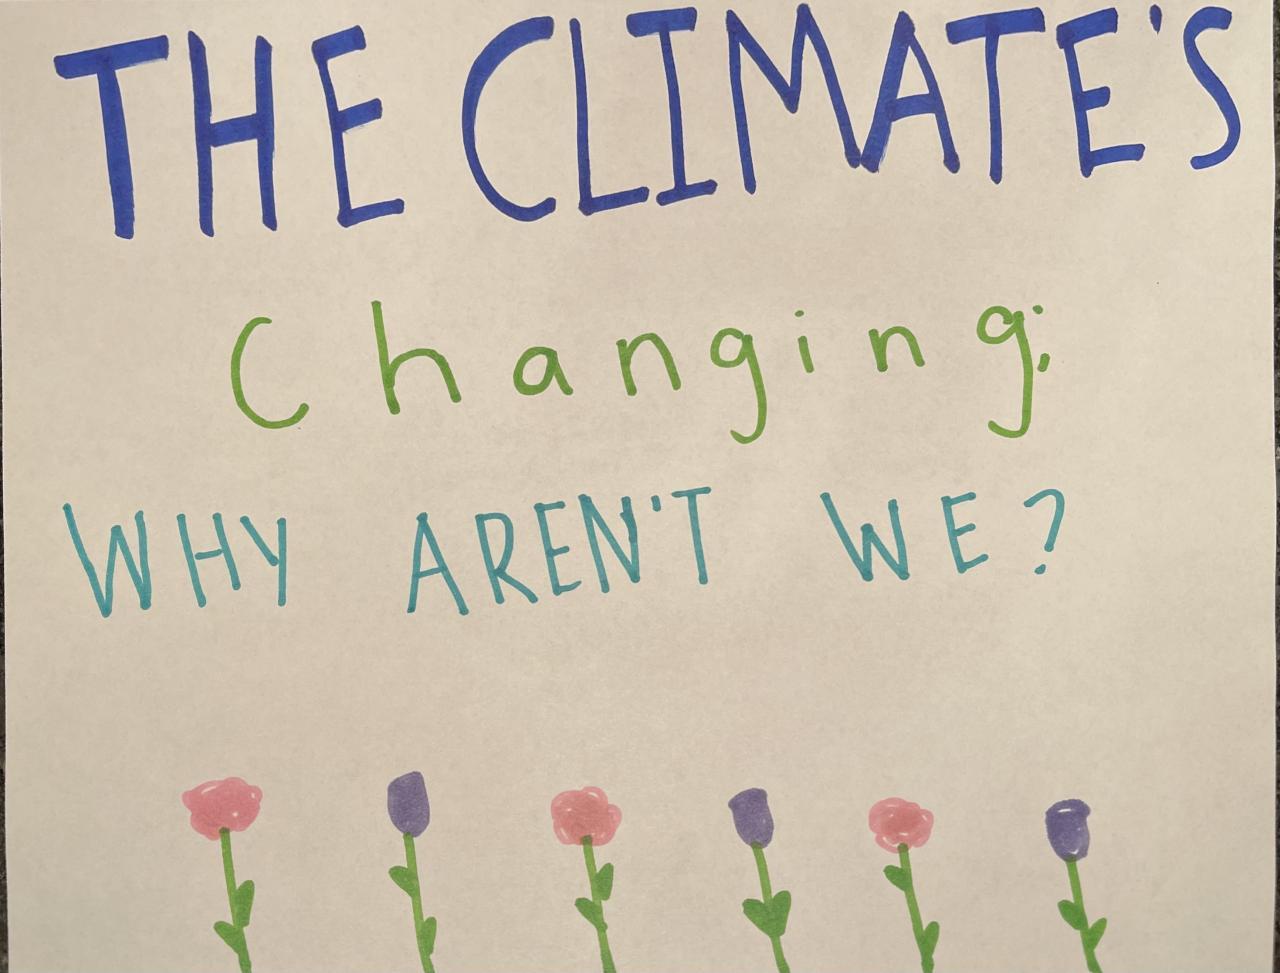 THE CLIMATE'S
Changing;
WHY AREN'T WE?